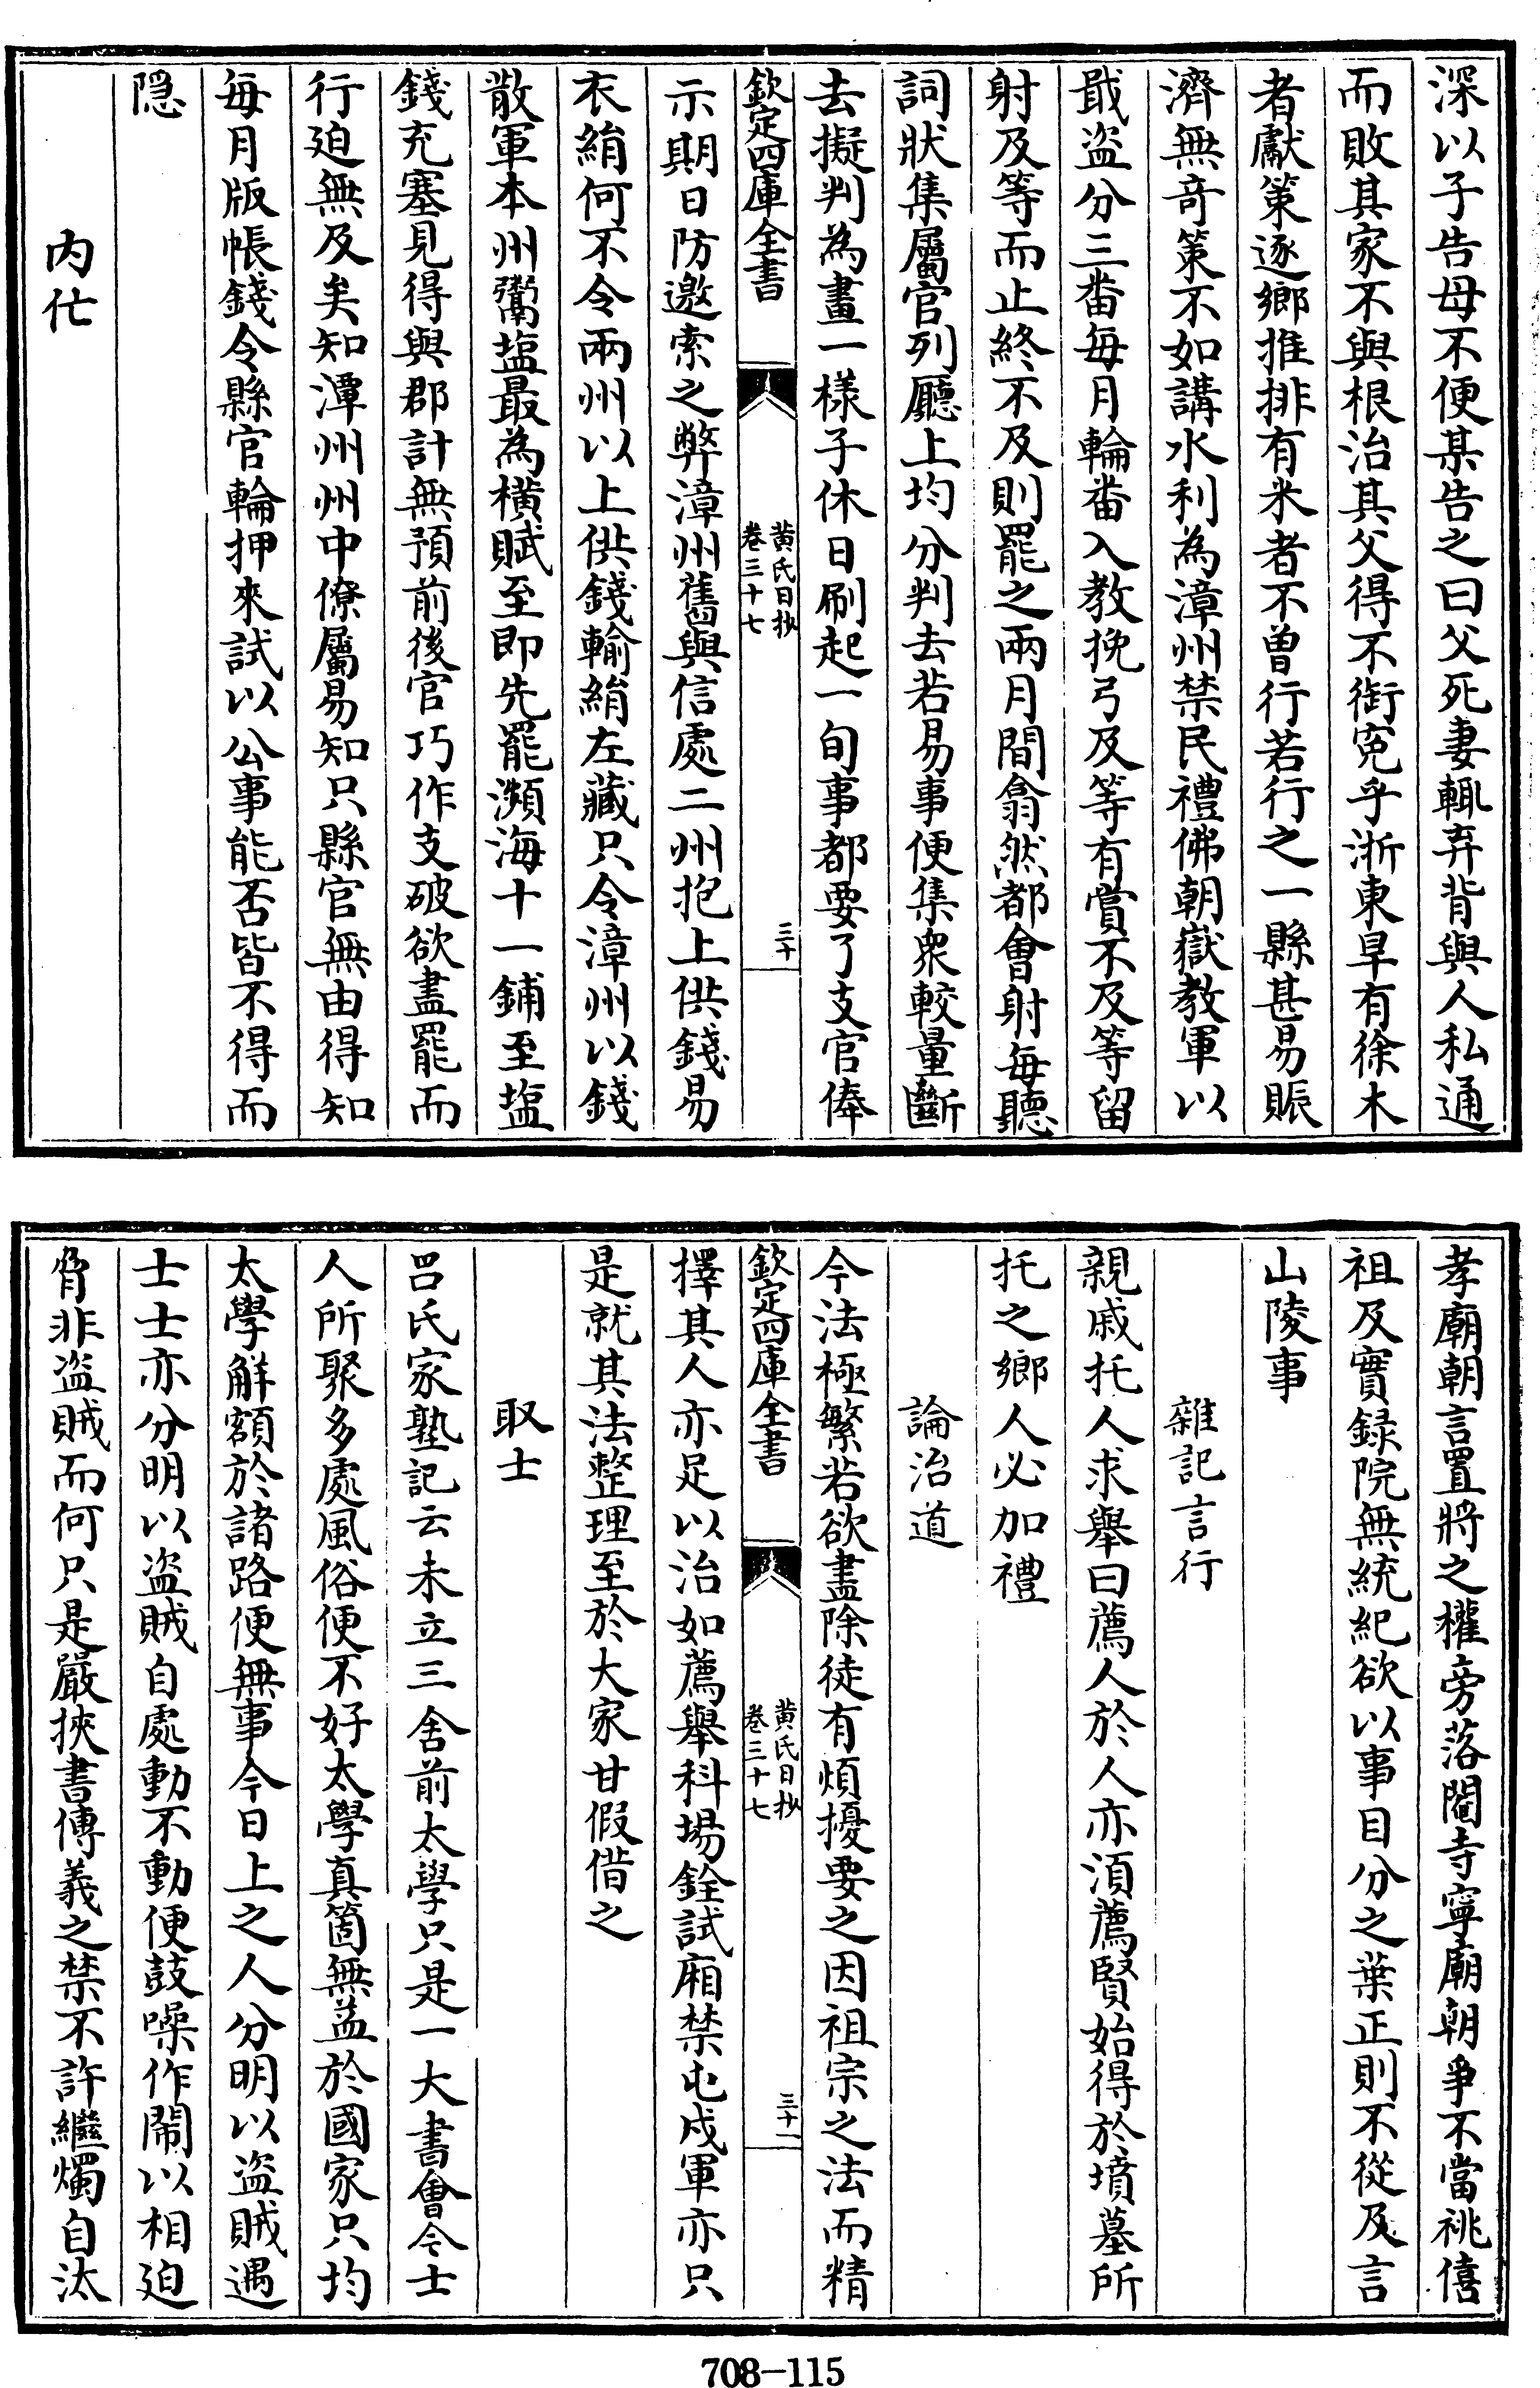 深以子告母不便某告之曰父死妻輒弃背與人私通
而敗其家不與根治其父得不銜寃乎浙東旱有徐木
者獻策逐鄉推排有米者不曽行若行之一縣甚易賑
濟無竒策不如講水利為漳州禁民禮佛朝嶽教軍以
戢盗分三畨每月輪畨入教挽弓及等有賞不及等留
射及等而止終不及則罷之兩月間翕然都會射每聽
詞狀集屬官列廳上均分判去若易事便集衆較量斷
去擬判為畫一様子休日刷起一旬事都要了支官俸
欽定四庫全書
黄氏日抄
卷三十七
三十
示期日防邀索之弊漳州舊與信處二州抱上供錢易
衣絹何不令兩州以上供錢輸絹左藏只令漳州以錢
散軍本州鬻塩最為横賦至即先罷瀕海十一鋪至塩
錢充塞見得與郡計無預前後官巧作支破欲盡罷而
行迫無及矣知潭州州中僚屬易知只縣官無由得知
每月版帳錢令縣官輪押來試以公事能否皆不得而
隠
内仕
孝廟朝言置將之權旁落閽寺寧廟朝爭不當祧僖
祖及實録院無統紀欲以事目分之葉正則不從及言
山陵事
雜記言行
親戚托人求舉曰薦人於人亦湏薦賢始得於墳墓所
托之鄉人必加禮
論治道
今法極繁若欲盡除徒有煩擾要之因祖宗之法而精
欽定四庫全書
黄氏日抄
卷三十七
三十一
擇其人亦足以治如薦舉科塲銓試廂禁屯戍軍亦只
是就其法整理至於大家甘假借之
取士
呂氏家塾記云未立三舍前太學只是一大書會今士
人所聚多處風俗便不好太學真箇無益於國家只均
太學解額於諸路便無事今日上之人分明以盗賊遇
士士亦分明以盗賊自處動不動便鼓噪作鬧以相廹
脅非盗賊而何只是嚴挾書傳義之禁不許繼燭自汰
708-115